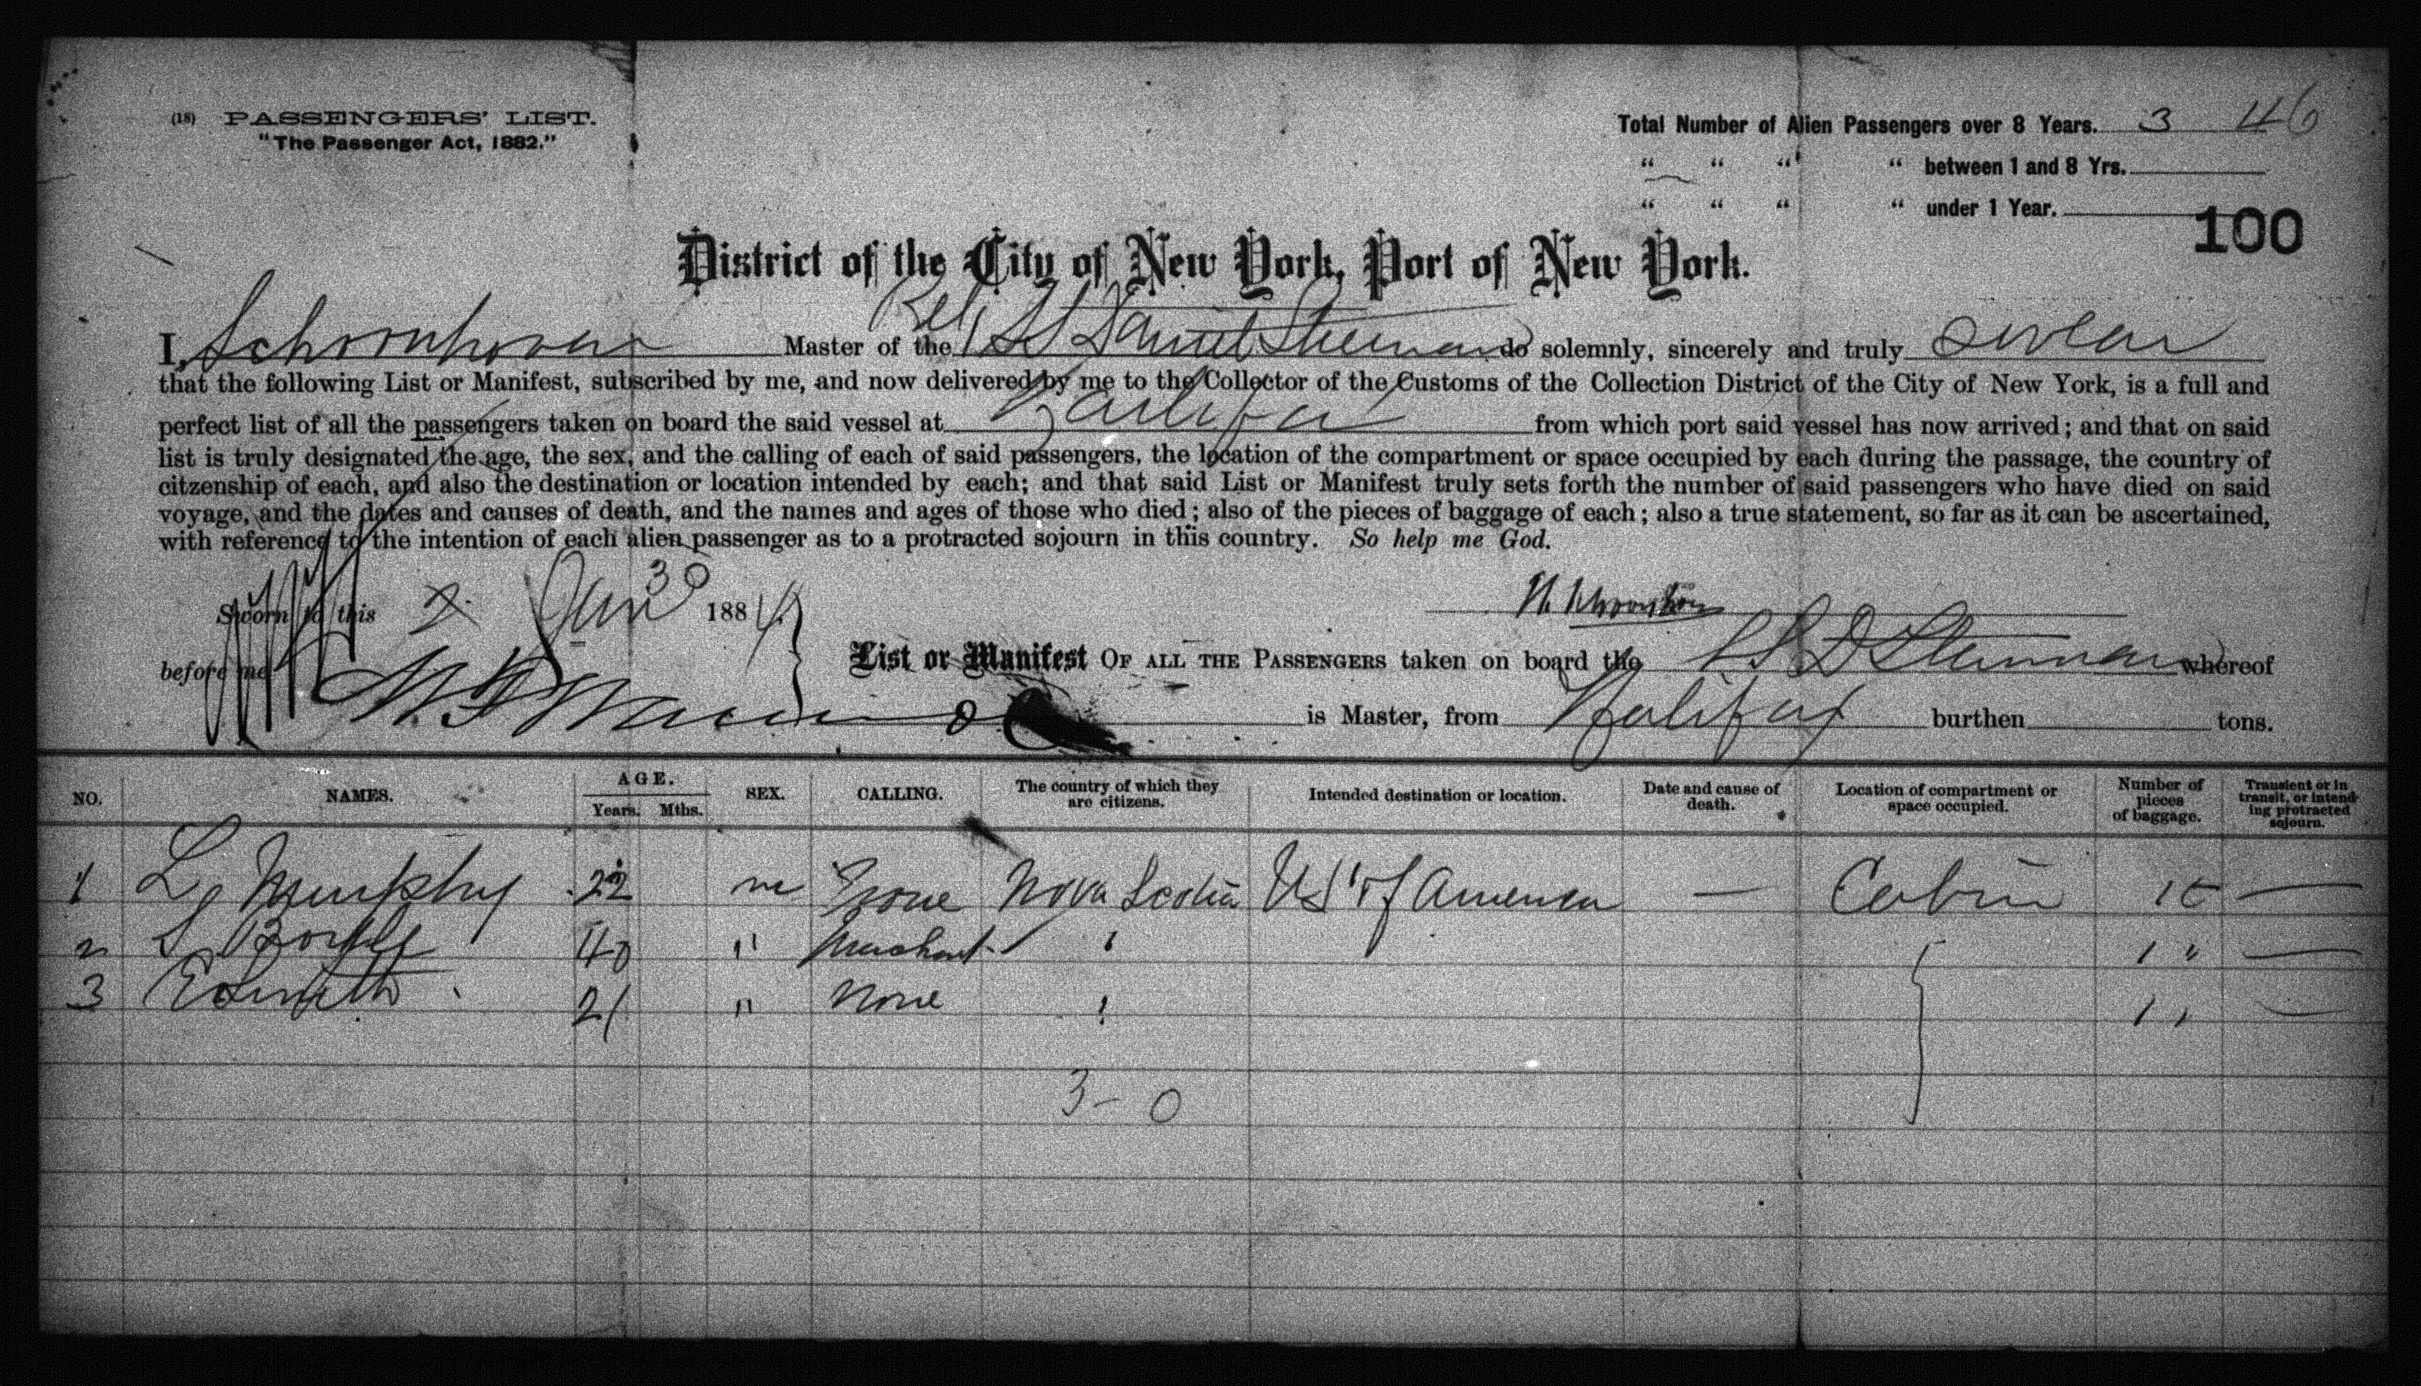 (18) PASSENGERS' LIST.
"The Passenger Act, 1882."
Total Number of Alien Passengers over 8 Years. 3 46
" " " " between 1 and 8 Yrs.
" " " " under 1 Year.
100
District of the City of New York, Port of New York.
I, Schoonhoven Master of the Belg SS Daniel Steinman do solemnly, sincerely and truly swear
that the following List or Manifest, subscribed by me, and now delivered by me to the Collector of the Customs of the Collection District of the City of New York, is a full and
perfect list of all the passengers taken on board the said vessel at Halifax from which port said vessel has now arrived; and that on said
list is truly designated the age, the sex, and the calling of each of said passengers, the location of the compartment or space occupied by each during the passage, the country of
citzenship of each, and also the destination or location intended by each; and that said List or Manifest truly sets forth the number of said passengers who have died on said
voyage, and the dates and causes of death, and the names and ages of those who died; also of the pieces of baggage of each; also a true statement, so far as it can be ascertained,
with reference to the intention of each alien passenger as to a protracted sojourn in this country. So help me God.
Sworn to this Jan 30 1884
before me
List or Manifest OF ALL THE PASSENGERS taken on board the SS D Steinman whereof
is Master, from Halifax burthen tons.
NO. NAMES. AGE. Years. Mths. SEX. CALLING. The country of which they are citizens. Intended destination or location. Date and cause of death. Location of compartment or space occupied. Number of pieces of baggage. Transient or in transit, or intending protracted sojourn.
1 L Murphy 22 m None Nova Scotia US of America — Cabin 1 —
2 S 40 " Merchant " 1 " —
3 E Smith 21 " None " 1 " —
3 - 0